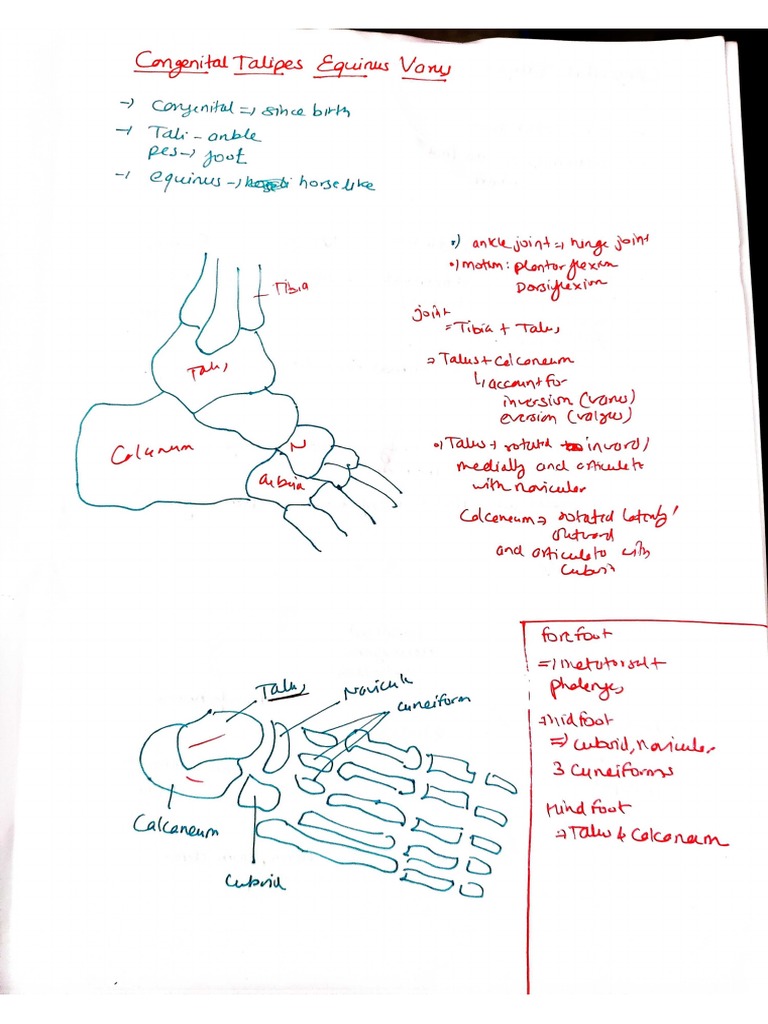 Congenital Talipes Equinus Varus
→ Congenital ⇒ since birth
→ Tali - ankle
pes → foot
→ equinus → horse like
Tibia
Talus
Calcaneum
N
Cuboid
•) ankle joint ⇒ hinge joint
•) motion: plantar flexion
Dorsiflexion
joint
= Tibia + Talus
⇒ Talus + Calcaneum
↳ account for
inversion (varus)
eversion (valgus)
•) Talus → rotated inward/
medially and articulate
with navicular
Calcaneum ⇒ rotated laterally/
outward
and articulate with
Cuboid
Talus
Navicular
Cuneiform
Calcaneum
Cuboid
forefoot
⇒ metatarsal +
phalanges
→ midfoot
⇒ cuboid, navicular
3 Cuneiforms
Hindfoot
→ Talus & Calcaneum